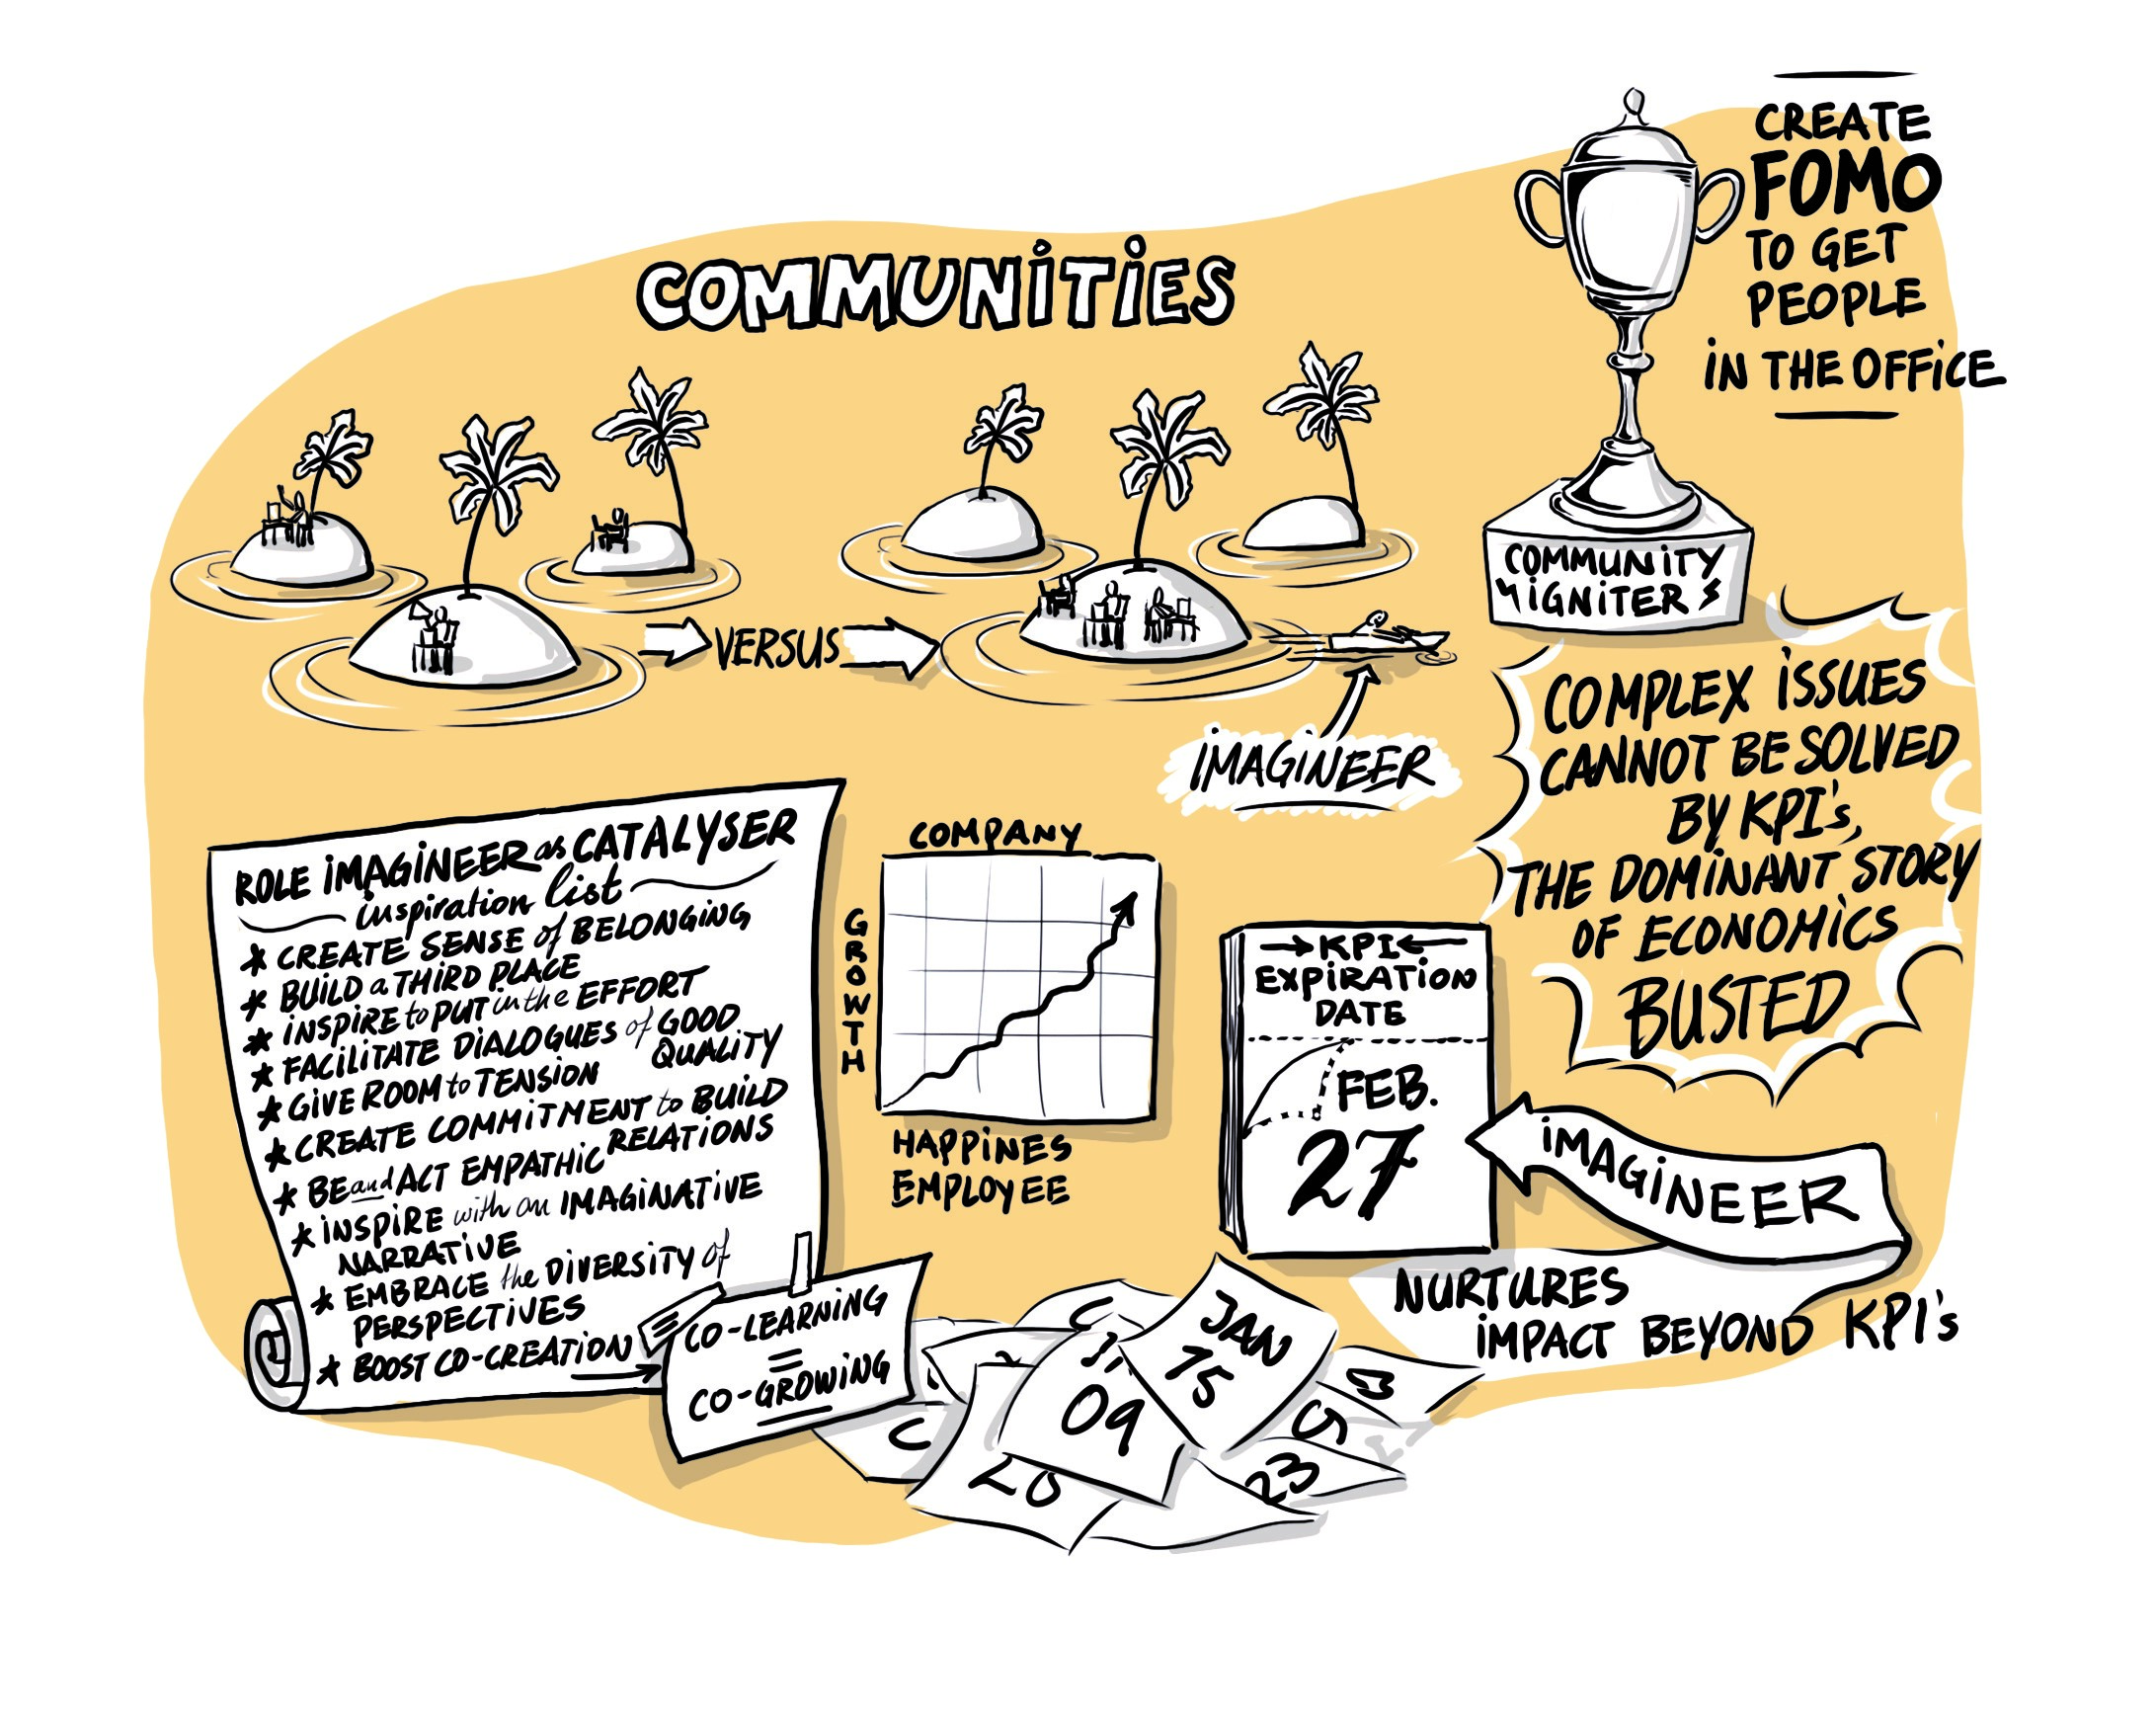 CREATE
FOMO
TO GET
PEOPLE
IN THE OFFICE
COMMUNITIES
COMMUNITY
IGNITER
VERSUS
IMAGINEER
COMPLEX ISSUES
CANNOT BE SOLVED
BY KPI's,
THE DOMINANT STORY
OF ECONOMICS
BUSTED
ROLE IMAGINEER as CATALYSER
inspiration list
* CREATE SENSE of BELONGING
* BUILD a THIRD PLACE
* INSPIRE to PUT in the EFFORT
* FACILITATE DIALOGUES of GOOD
QUALITY
* GIVE ROOM to TENSION
* CREATE COMMITMENT to BUILD
RELATIONS
* BE and ACT EMPATHIC
* INSPIRE with an IMAGINATIVE
NARRATIVE
* EMBRACE the DIVERSITY of
PERSPECTIVES
* BOOST CO-CREATION
CO-LEARNING
=
CO-GROWING
COMPANY
GROWTH
HAPPINES
EMPLOYEE
KPI
EXPIRATION
DATE
FEB.
27
IMAGINEER
NURTURES
IMPACT BEYOND KPI's
JAN
15
09
23